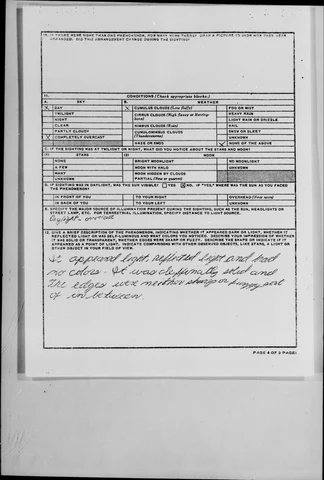 10. IF THERE WERE MORE THAN ONE PHENOMENON, HOW MANY WERE THERE? DRAW A PICTURE OF HOW THEY WERE
ARRANGED. DID THIS ARRANGEMENT CHANGE DURING THE SIGHTING?
11. CONDITIONS (Check appropriate blocks.)
A. SKY B. WEATHER
X DAY X CUMULUS CLOUDS (Low fluffy) FOG OR MIST
TWILIGHT CIRRUS CLOUDS HEAVY RAIN
NIGHT NIMBUS CLOUDS (Rain) LIGHT RAIN OR DRIZZLE
CLEAR CUMULONIMBUS CLOUDS HAIL
PARTLY CLOUDY (Thunderstorms) SNOW OR SLEET
X COMPLETELY OVERCAST HAZE OR SMOG UNKNOWN
NONE OF THE ABOVE
C. IF THE SIGHTING WAS AT TWILIGHT OR NIGHT, WHAT DID YOU NOTICE ABOUT THE STARS AND MOON?
(1) STARS (2) MOON
NONE BRIGHT MOONLIGHT NO MOONLIGHT
A FEW MOON WITH HALO UNKNOWN
MANY MOON HIDDEN BY CLOUDS
UNKNOWN PARTIAL (New or quarter)
D. IF SIGHTING WAS IN DAYLIGHT, WAS THE SUN VISIBLE? YES NO. IF "YES" WHERE WAS THE SUN AS YOU FACED
THE PHENOMENON?
IN FRONT OF YOU TO YOUR RIGHT OVERHEAD (Near noon)
IN BACK OF YOU TO YOUR LEFT UNKNOWN
E. SPECIFY THE MAJOR SOURCE OF ILLUMINATION PRESENT DURING THE SIGHTING, SUCH AS THE SUN, HEADLIGHTS OR
STREET LAMP, ETC. FOR TERRESTRIAL ILLUMINATION, SPECIFY DISTANCE TO LIGHT SOURCE.
Daylight - overcast
12. GIVE A BRIEF DESCRIPTION OF THE PHENOMENON, INDICATING WHETHER IT APPEARED DARK OR LIGHT, WHETHER IT
REFLECTED LIGHT OR WAS SELF-LUMINOUS AND WHAT COLORS YOU NOTICED. DESCRIBE YOUR IMPRESSION OF WHETHER
IT WAS SOLID OR TRANSPARENT, WHETHER EDGES WERE SHARP OR FUZZY. DESCRIBE THE SHAPE OR INDICATE IF IT
APPEARED AS A POINT OF LIGHT. INDICATE COMPARISONS WITH OTHER OBSERVED OBJECTS, LIKE STARS, A LIGHT OR
OTHER OBJECT IN YOUR FIELD OF VIEW.
It appeared light, reflected light and had
no colors. It was deffinatly solid and
the edges were neither sharp or fuzzy sort
of in between.
PAGE 4 OF PAGES